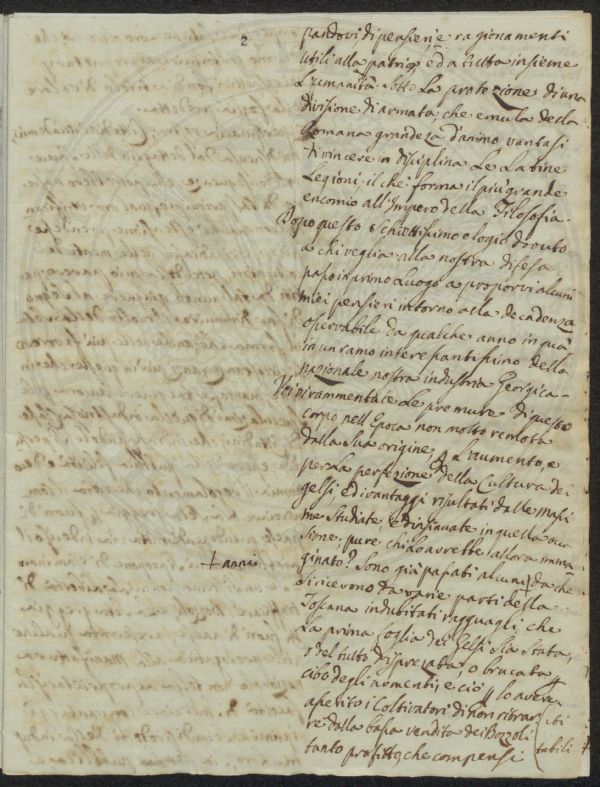 2
pandovi di pensieri, e ragionamenti
utili alla patria, ed a tutta insieme
L'umanità sotto La protezione di una
divisione di armata che emula della
Romana grandeza d'animo vantasi
di vincere in disciplina Le Latine
Legioni; il che forma il più grande
encomio all'Impero della Filosofia.
Dopo questo schiettissimo elogio dovuto
a chi veglia alla nostra difesa
passo in primo Luogo a proporvi alcuni
miei pensieri intorno alla decadenza
osservabile da qualche anno in quà
in un ramo interessantissimo della
nazionale nostra industria Georgica-
Voi vi rammentate Le premure di questo
corpo nell'Epoca non molto remota
dalla sua origine, p l'aumento, e
per La perfezione della Cultura dei
gelsi, e di vantaggi risultati dalle massi
me studiate, ed insinuate in quella occa
sione; pure chi lo avrebbe allora imma
ginato? Sono già passati alcuni da che
+ anni
si ricevono da varie parti della
Toscana indubitati ragguagli che
La prima foglia dei Gelsi sia stata,
o del tutto disprezata, o brucata p
cibo degli armenti; e ciò p lo avere
asperito i Coltivatori di non ritrar
re dalla bassa vendita dei Bozzoli
tanto profitto, che compensi